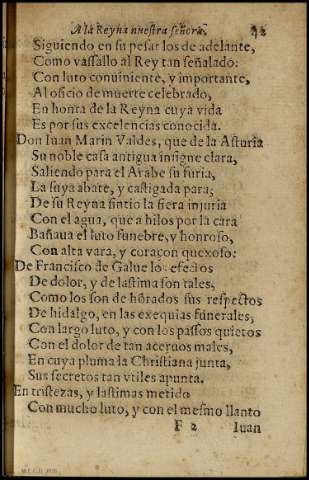 A la Reyna nuestra señora. 42
Siguiendo en su pesar los de adelante,
Como vassallo al Rey tan señalado:
Con luto conuiniente, y importante,
Al oficio de muerte celebrado,
En honra de la Reyna cuya vida
Es por sus excelencias conocida.
Don Iuan Marin Valdes, que de la Asturia
Su noble casa antigua insigne clara,
Saliendo para el Arabe su furia,
La suya abate, y castigada para;
De su Reyna sintio la fiera injuria
Con el agua, que a hilos por la cara
Bañaua el luto funebre, y honroso,
Con alta vara, y coraçon quexoso:
De Francisco de Galue los efectos
De dolor, y de lastima son tales,
Como los son de hõrados sus respectos
De hidalgo, en las exequias funerales;
Con largo luto, y con los passos quietos
Con el dolor de tan aceruos males,
En cuya pluma la Christiana junta,
Sus secretos tan vtiles apunta.
En tristezas, y lastimas metido
Con mucho luto, y con el mesmo llanto
F 2 Iuan